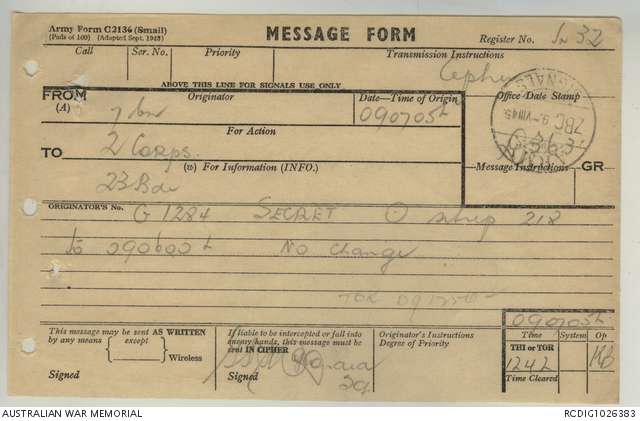 Army Form C2136 (Small)
(Pads of 100) (Adopted Sept. 1943)
MESSAGE FORM
Register No. In 32
Call Ser. No. Priority Transmission Instructions
Cipher
ABOVE THIS LINE FOR SIGNALS USE ONLY
FROM
(A)
Originator
7 bn
Date-Time of Origin
090705L
Office Date Stamp
SIGNALS
ZBC 9-VIII45
For Action
TO
2 Corps.
(W) For Information (INFO.)
23 Bde
Message Instructions GR
ORIGINATOR'S No.
G 1284 SECRET O strip 218
to 090600L No change
TOR
090705L
This message may be sent AS WRITTEN
by any means except
Wireless
Signed
If liable to be intercepted or fall into
enemy hands, this message must be
sent IN CIPHER
Signed
Originator's Instructions
Degree of Priority
Time System Op
THI or TOR
1242
Time Cleared
AUSTRALIAN WAR MEMORIAL
RCDIG1026383